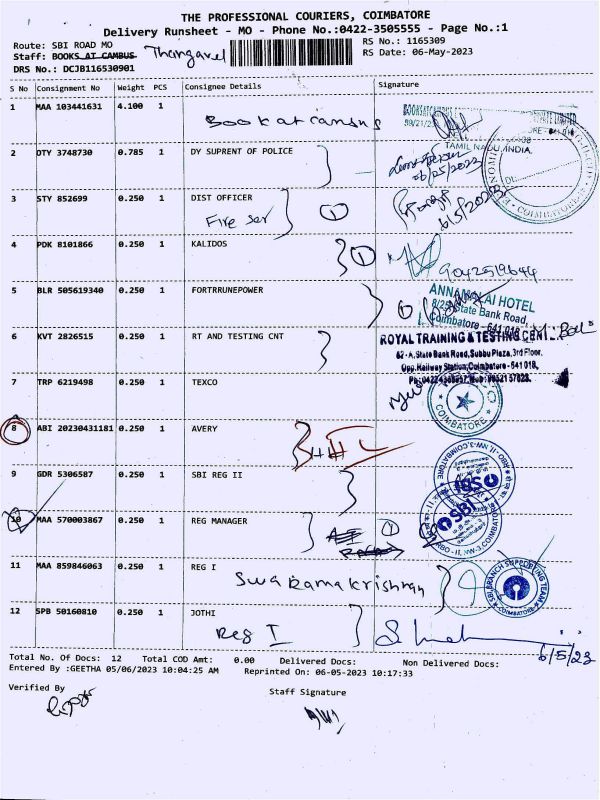 THE PROFESSIONAL COURIERS, COIMBATORE
Delivery Runsheet - MO - Phone No.:0422-3505555 - Page No.:1
Route: SBI ROAD MO
RS No.: 1165309
Staff: BOOKS AT CAMBUS Thangavel
RS Date: 06-May-2023
DRS No.: DCJB116530901
S No Consignment No Weight PCS Consignee Details Signature
1 MAA 103441631 4.100 1
Book at campus
TAMIL NADU, INDIA.
2 DTY 3748730 0.785 1 DY SUPRENT OF POLICE
06/05/2023
3 STY 852699 0.250 1 DIST OFFICER
Fire ser 1
6/5/2023
COIMBATORE
4 PDK 8101866 0.250 1 KALIDOS
1
9042519644
5 BLR 505619340 0.250 1 FORTRRUNEPOWER
ANNAMALAI HOTEL
8/25 State Bank Road,
Coimbatore - 641 018
6 KVT 2826515 0.250 1 RT AND TESTING CNT
ROYAL TRAINING & TESTING CENT
62 - A, State Bank Road, Subbu Plaza, 3rd Floor,
Opp. Railway Station, Coimbatore - 641 018,
7 TRP 6219498 0.250 1 TEXCO
COIMBATORE
8 ABI 20230431181 0.250 1 AVERY
9 GDR 5306587 0.250 1 SBI REG II
10 MAA 570003867 0.250 1 REG MANAGER
1
SBI
11 MAA 859846063 0.250 1 REG I
Swa Ramakrishnan
SBI BRANCH SUPPORTING TEAM
COIMBATORE
12 SPB 50160810 0.250 1 JOTHI
Reg I
6/5/23
Total No. Of Docs: 12 Total COD Amt: 0.00 Delivered Docs: Non Delivered Docs:
Entered By :GEETHA 05/06/2023 10:04:25 AM Reprinted On: 06-05-2023 10:17:33
Verified By
Staff Signature